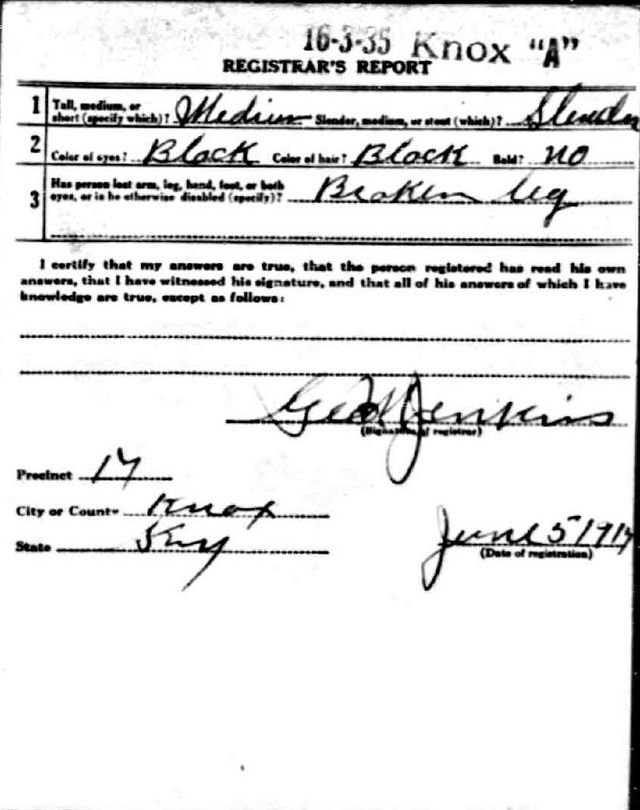 16-3-35 Knox "A"
REGISTRAR'S REPORT
1 Tall, medium, or short (specify which)? Medium Slender, medium, or stout (which)? Slender
2 Color of eyes? Black Color of hair? Black Bald? no
3 Has person lost arm, leg, hand, foot, or both
eyes, or is he otherwise disabled (specify)? Broken leg
I certify that my answers are true, that the person registered has read his own
answers, that I have witnessed his signature, and that all of his answers of which I have
knowledge are true, except as follows:
Geo Jenkins
(Signature of registrar)
Precinct 17
City or County Knox
State Ky
June 5 1917
(Date of registration)